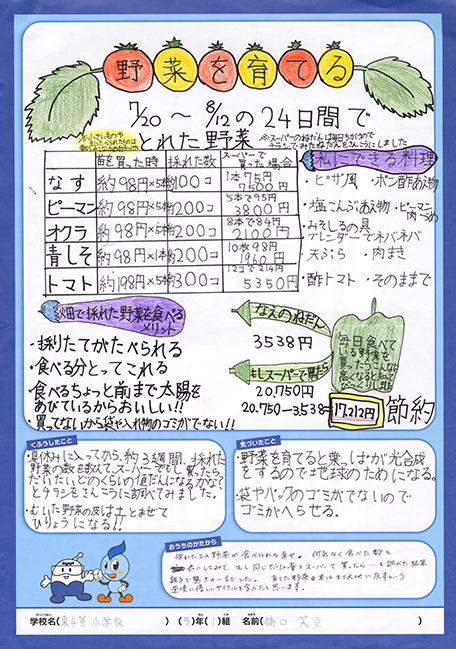 野菜を育てる
7/20～8/12の24日間で
とれた野菜
※スーパーのねだんは毎日ちがうので
チラシでみたねだんをさんこうにしました
苗を買った時 採れた数 スーパーで買った場合
なす 約98円×5本 約100コ 1本75円 7500円
ピーマン 約98円×5本 約200コ 5本で95円 3800円
オクラ 約98円×5本 約200コ 8本で84円 2100円
青しそ 約98円×1本 約200コ 10枚98円 1960円
トマト 約198円×5本 約300コ 12コで214円 5350円
私にできる料理
・ピザ風 ・ポン酢あえ物
・塩こんぶあえ物 ・ピーマン肉づめ
・みそしるの具
ブレンダーでネバネバ
天ぷら ・肉まき
・酢トマト ・そのままで
畑で採れた野菜を食べる
メリット
・採りたてがたべられる
・食べる分とってこれる
・食べるちょっと前まで太陽を
あびているからおいしい!!
・買ってないから袋や入れ物のゴミがでない!!
なえのねだん
3538円
もしスーパーで買たら
20,750円
20.750-3,538=17,212円 節約
毎日食べて
いる野菜を
買ったらこんな
くふうしたこと
・夏休みに入ってから、約3週間、採れた
野菜の数を数えて、スーパーでもし買ったら
だいたいどのくらいの値だんになるかな?
とチラシをさんこうに調べてみました。
・むいた野菜の皮は土とまぜて
ひりょうになる!!
気づいたこと
・野菜を育てると葉っぱが光合成
をするので地球のためになる。
・袋やパックのゴミがでないので
ゴミがへらせる。
おうちのかたから
採れたての野菜が食べられる幸せ。何気なく食べた数を
表にしてみて、もし同じだけの量をスーパーで買ったら…と調べた結果
学校名( 小学校 ) (5)年(1)組 名前( )